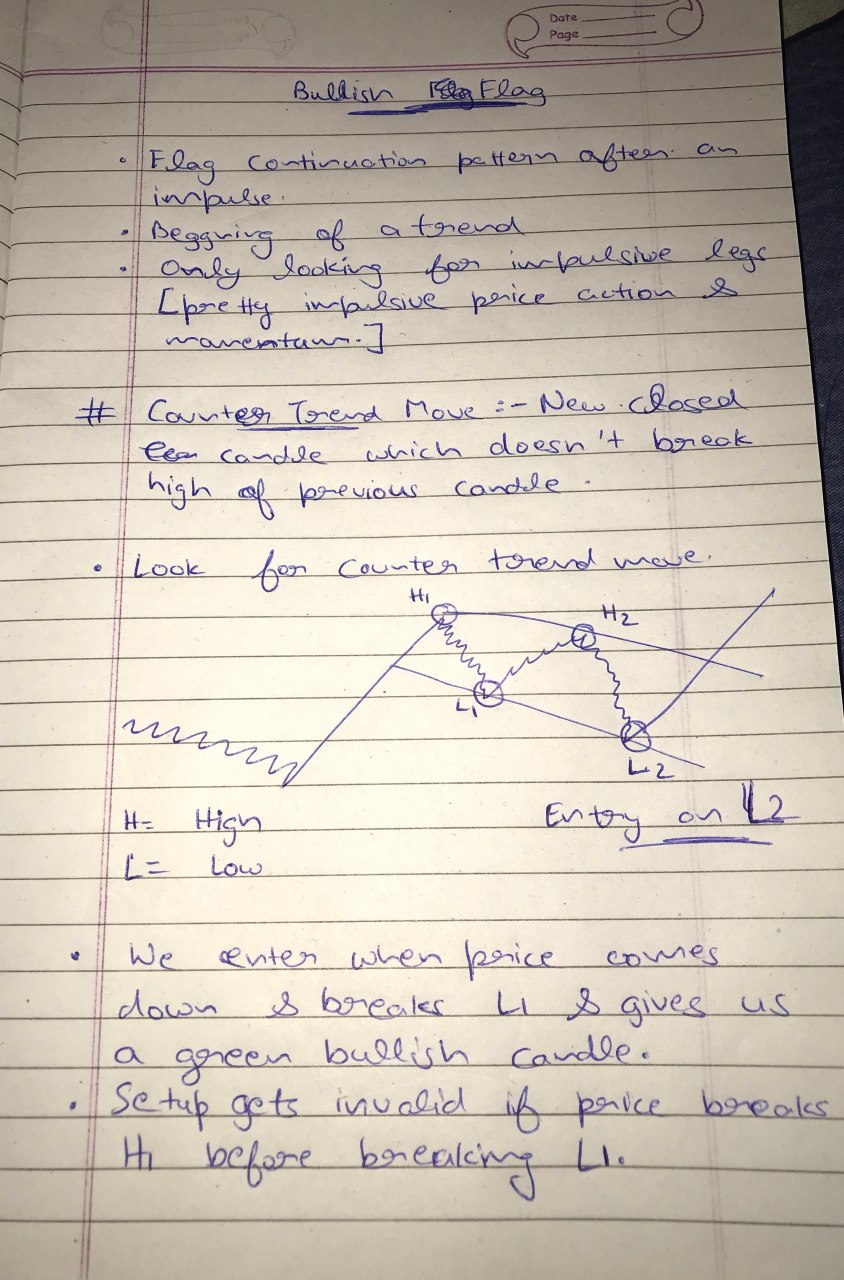 Date
Page
Bullish Flag
• Flag continuation pattern after an
impulse.
• Beggning of a trend
• Only looking for impulsive legs
[pretty impulsive price action &
momentum.]
# Counter Trend Move :- New closed
candle which doesn't break
high of previous candle.
• Look for counter trend move.
H1
H2
L1
L2
H= High
L= Low
Entry on L2
• We enter when price comes
down & breaks L1 & gives us
a green bullish candle.
• Setup gets invalid if price breaks
H1 before breaking L1.